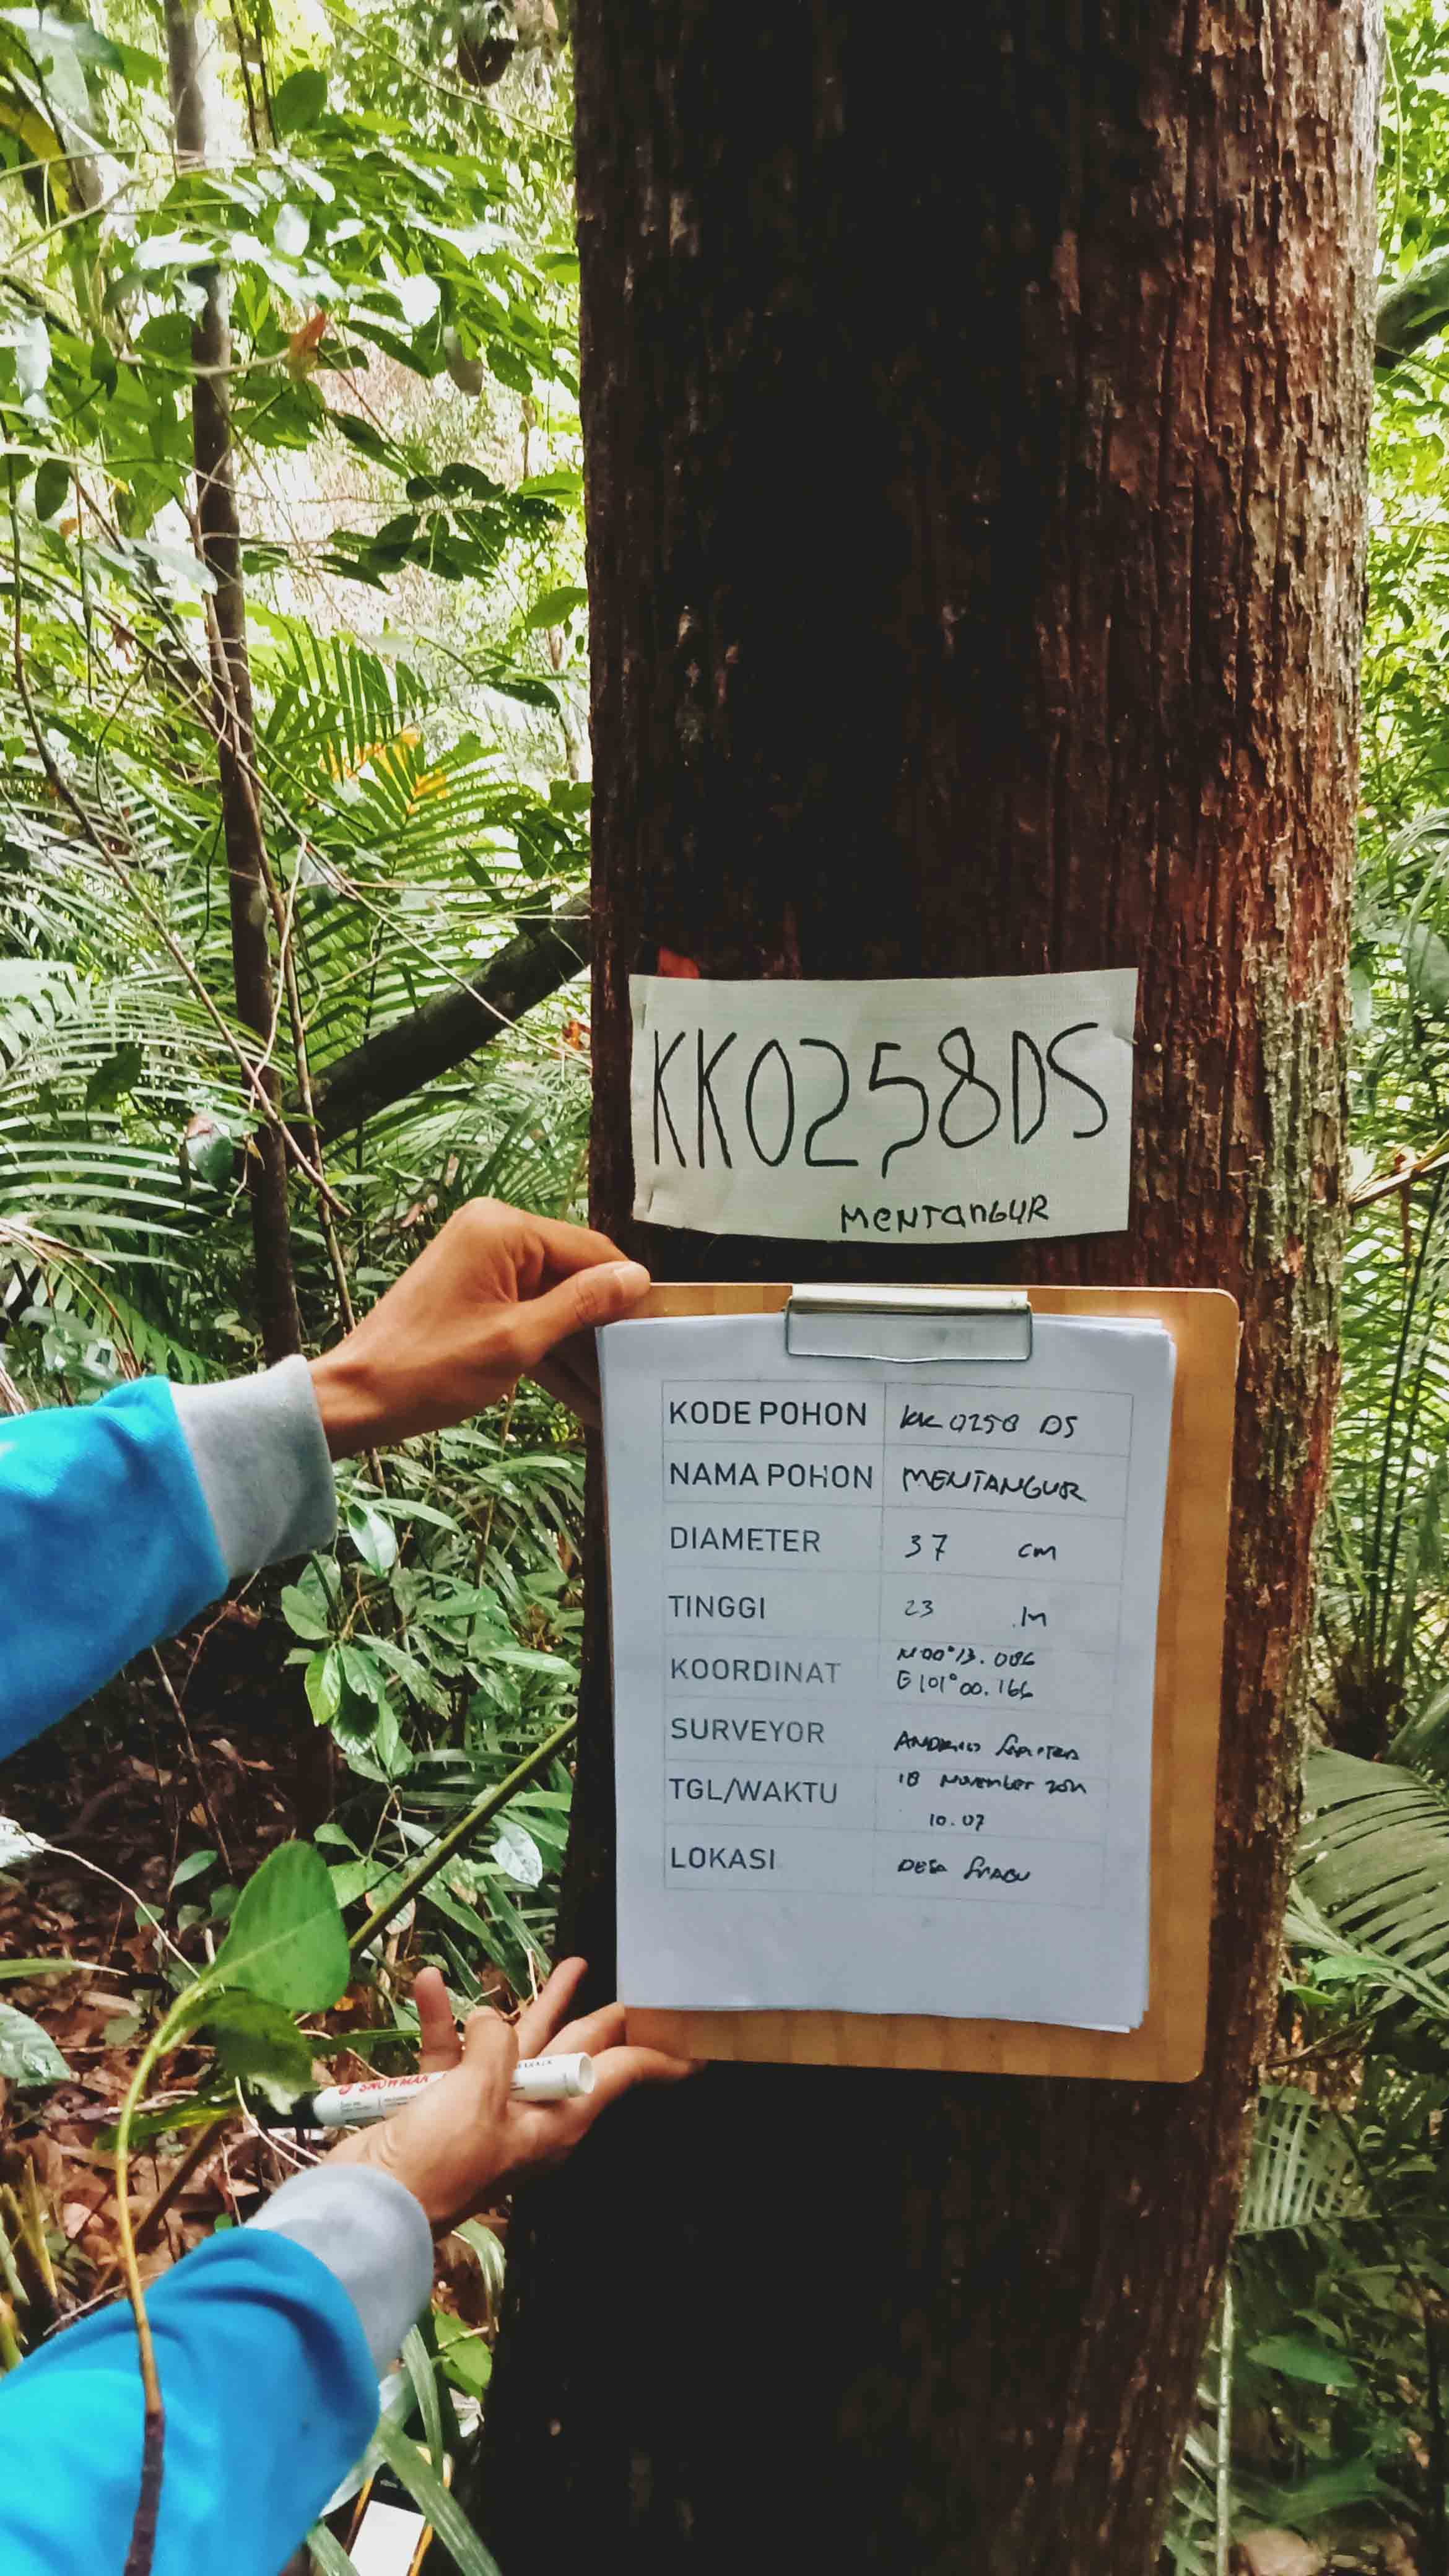 KK0258DS
MENTANGUR
KODE POHON KK 0258 DS
NAMA POHON MENTANGUR
DIAMETER 37 cm
TINGGI 23 m
KOORDINAT N 00° 13. 086
E 101° 00. 166
SURVEYOR
TGL/WAKTU 18 November
10.07
LOKASI DESA
SNOWMAN